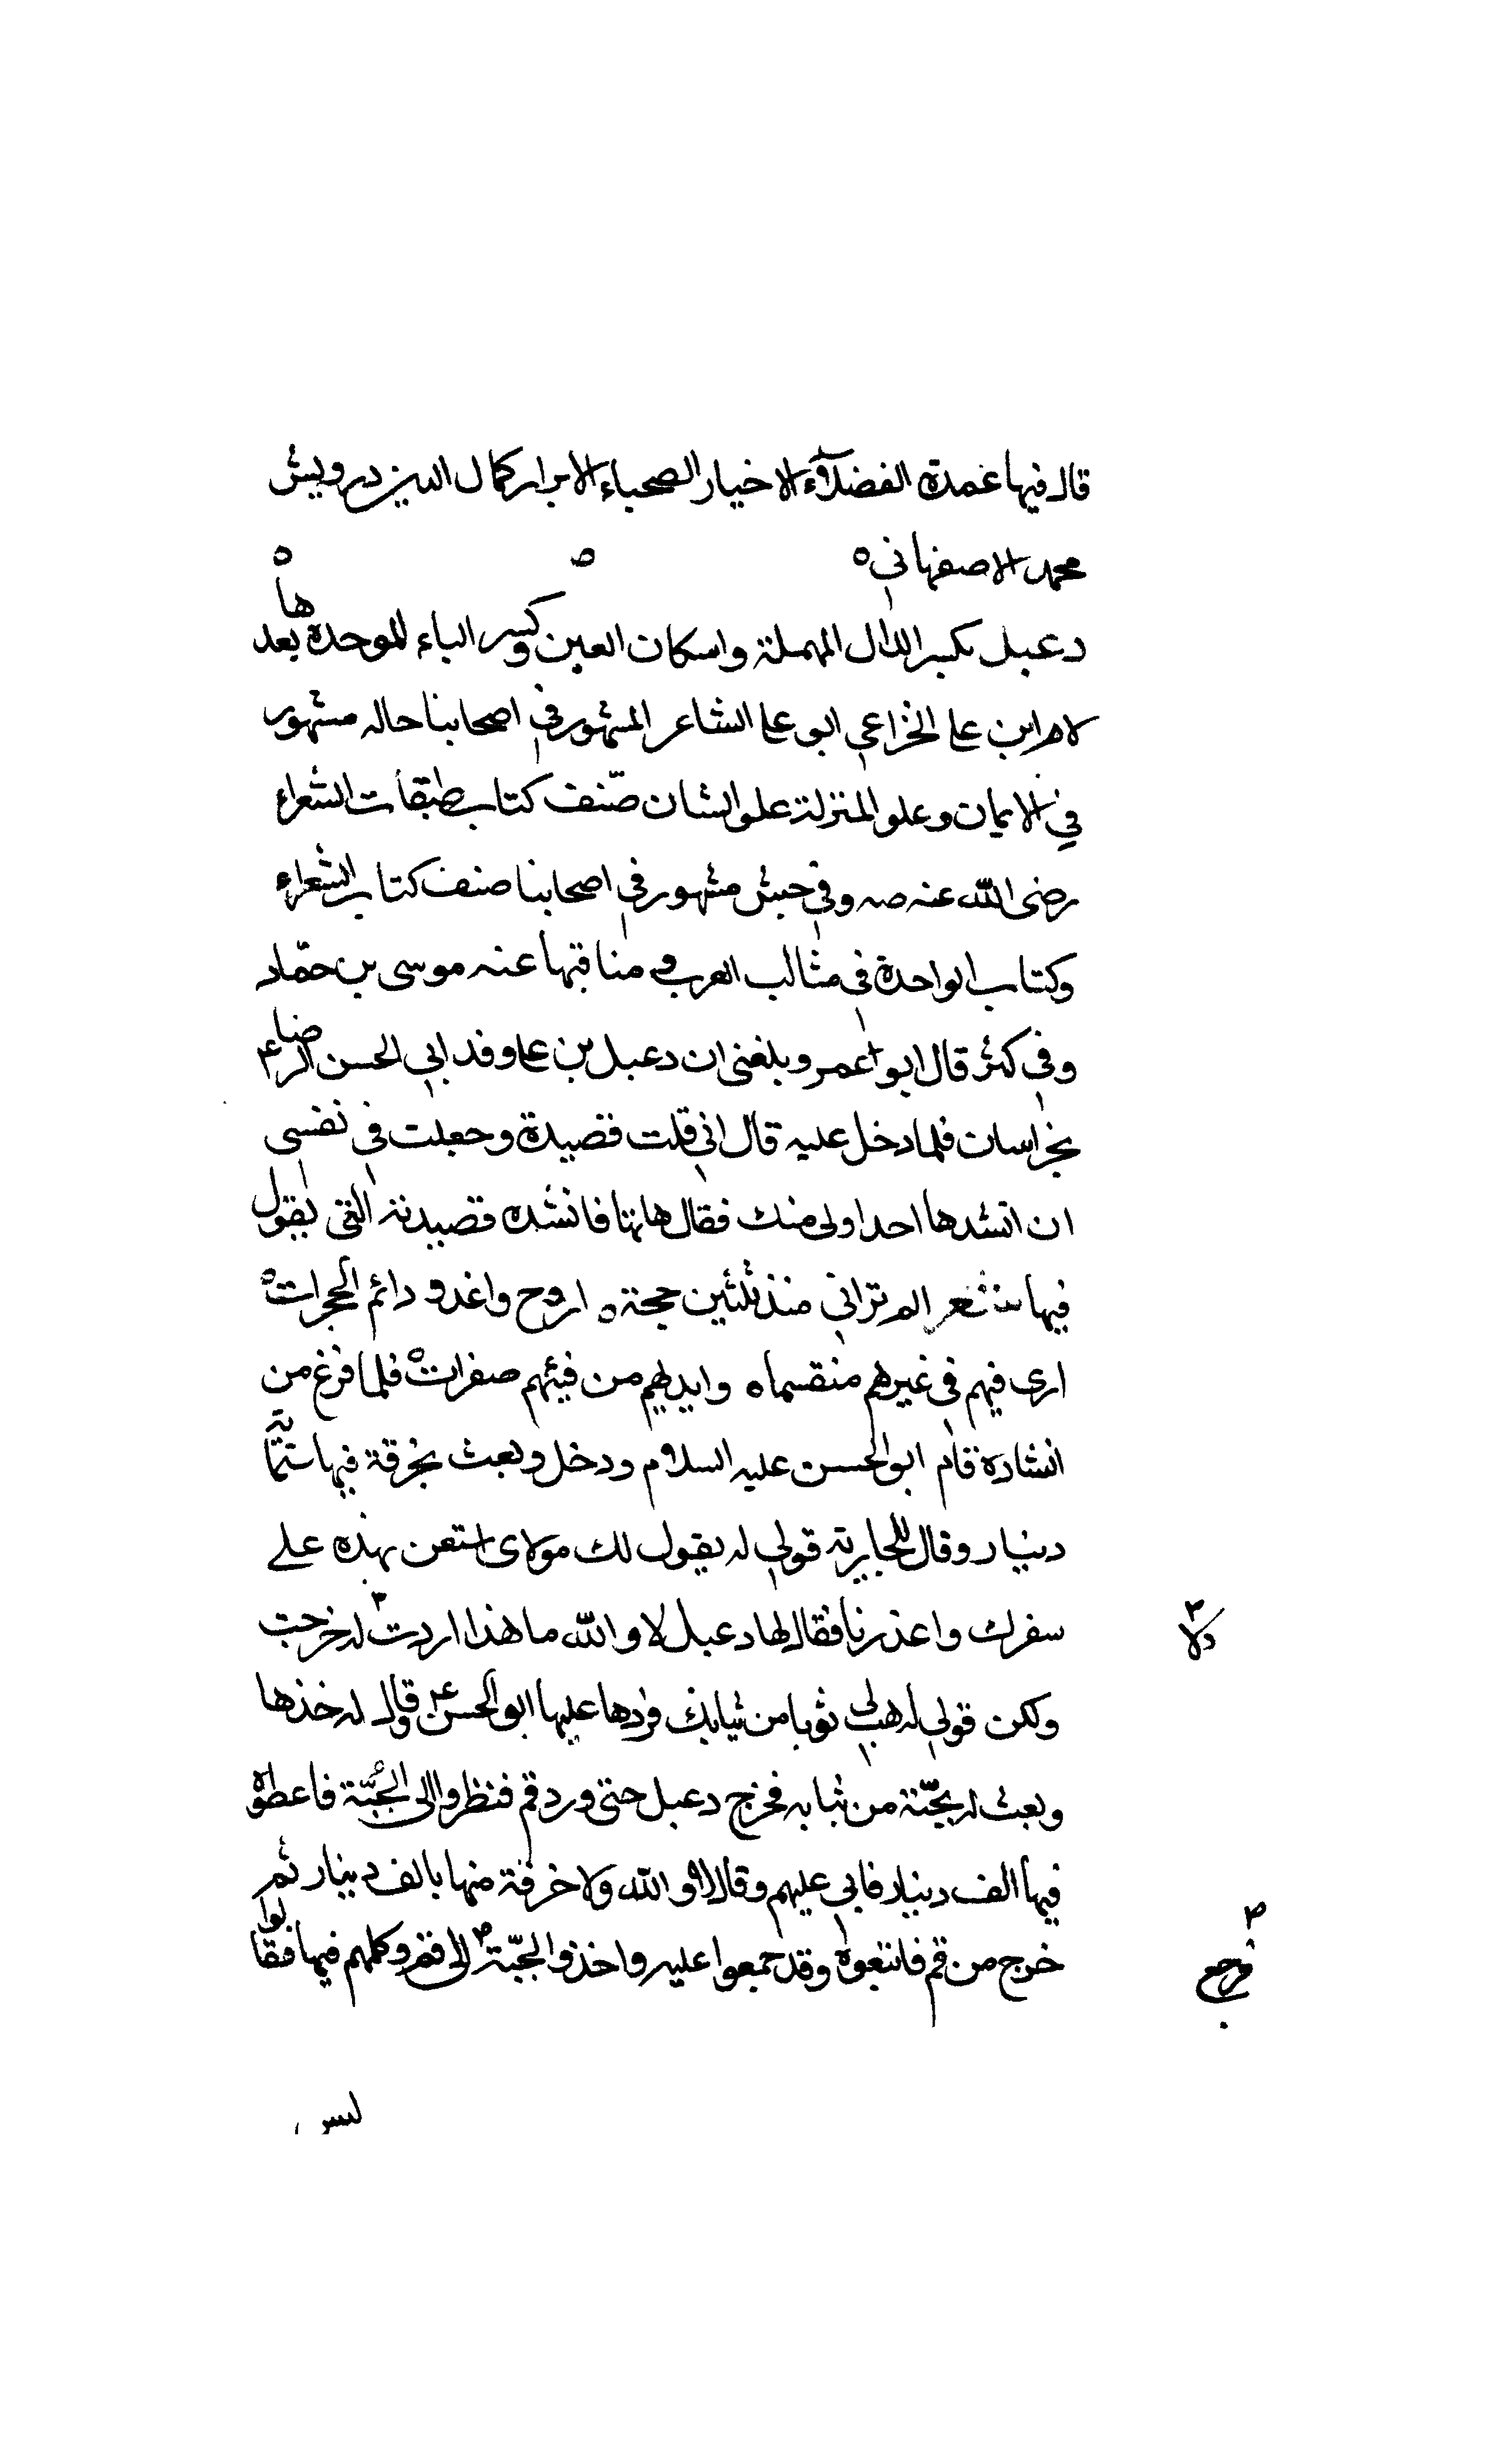 قال فيها عمدة الفضلاء الاخيار الصحباء الابرار كمال الدين درويش
محمد الاصفهاني
دعبل بكسر الدال المهملة واسكان العين وكسر الباء الموحدة بعدها
لام ابن علي الخزاعي ابو علي الشاعر المشهور في اصحابنا حاله مشهور
في الايمان وعلو المنزلة علو الشان صنّف كتاب طبقات الشعراء
رضى الله عنه صه وفي جش مشهور في اصحابنا صنف كتاب الشعراء
وكتاب الواحدة في مثالب العرب و مناقبها عنه موسى بن حمّاد
وفي كش قال ابو عمرو بلغني ان دعبل بن علي وفد ابي الحسن الرضا ع
بخراسان فلما دخل عليه قال اني قلت قصيدة وجعلت في نفسي
ان انشدها احدا ولى منك فقال هاتها فانشده قصيدته التي يقول
فيها شعر الم تراني منذ ثلثين حجة ه اروح واغدو دائم الحجرات ه
ارى فيهم في غيرهم منقسما ه وايديهم من فيئهم صفرات ه فلما فرغ من
انشاده قام ابو الحسن عليه السلام ودخل وبعث بخرقة فيها ستمائة
دينار وقال للجارية قولي له يقول لك مولاى استعن بهذه على
سفرك واعذرنا فقال لها دعبل لا والله ما هذا اردت له خرجت
ولا
ولكن قولي له هب لي ثوبا من ثيابك فردها عليها ابو الحسن ع وقال له خذها
وبعث له بجبّة من ثيابه فخرج دعبل حتى ورد قم فنظروا الى الجُبّة فاعطوه
فيها الف دينار فابى عليهم وقال لا و الله ولا خرقة منها بالف دينار ثم
خرج من قم فاتبعوه وقد جمعوا عليه واخذوا الجبّة الى قم وكلمهم فيها فقالوا
فرجع
ليس